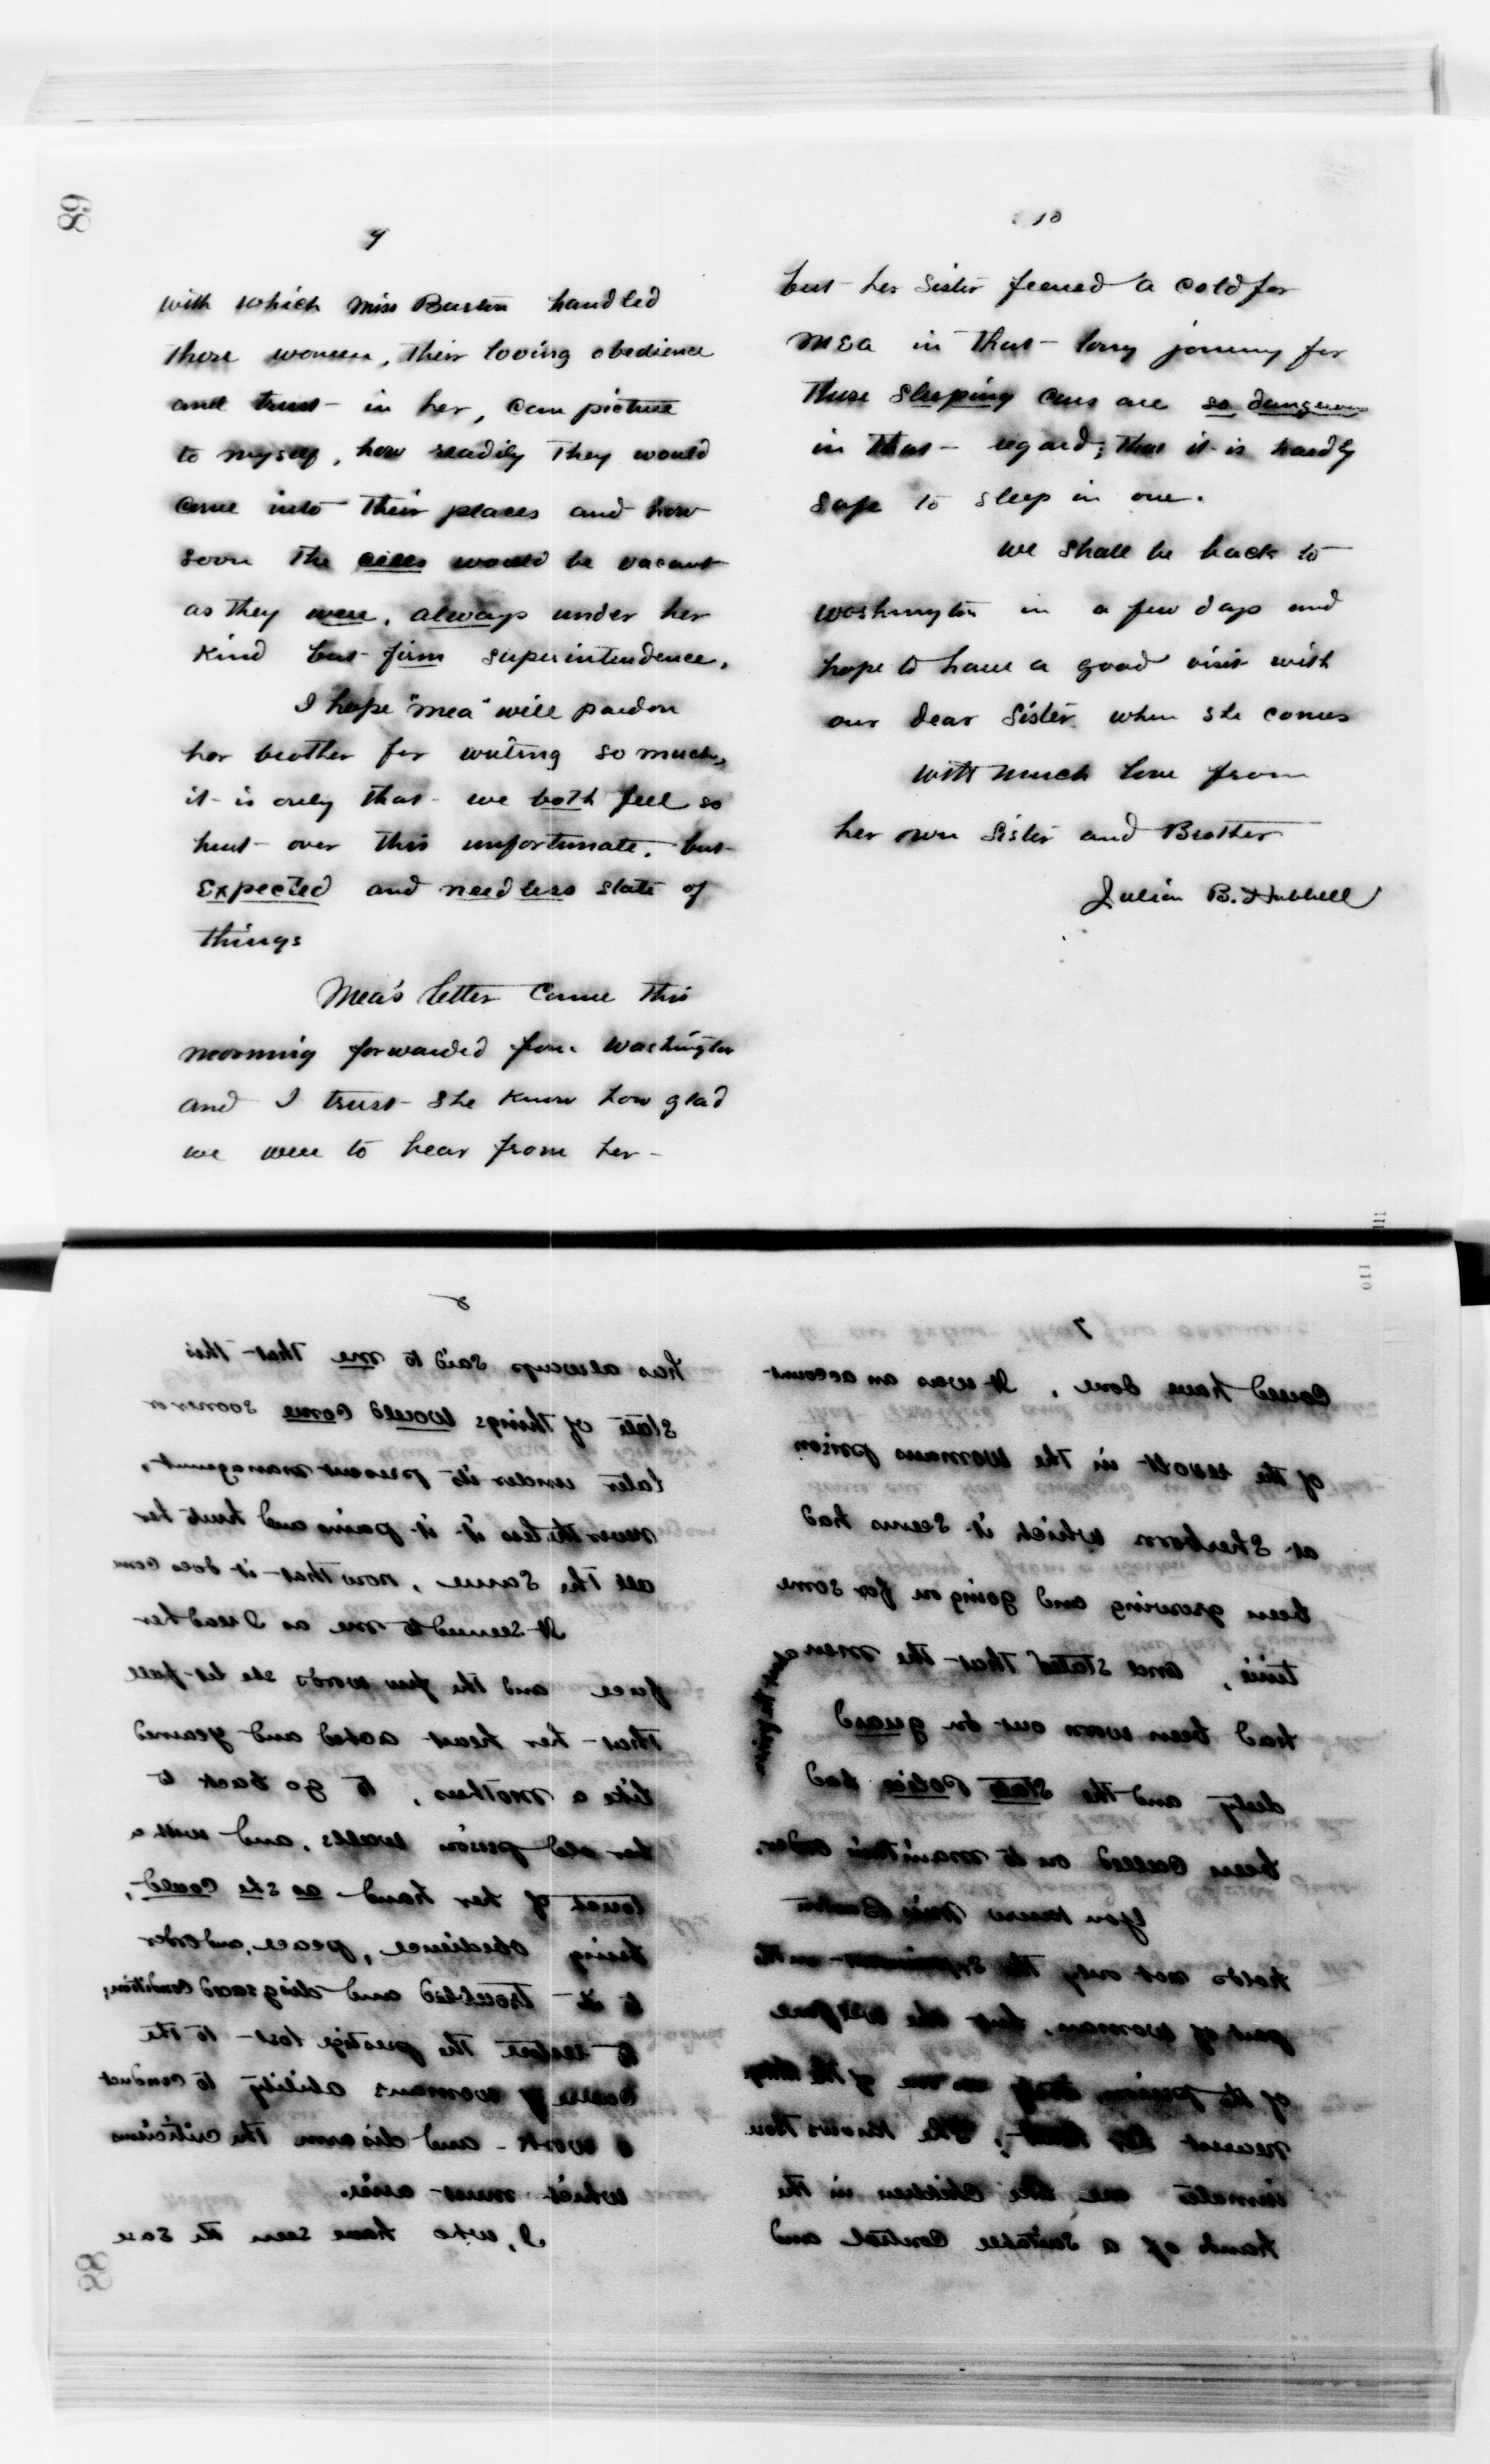 68
9
with which Miss Barton handled
those women, their loving obedience
and trust in her, can picture
to myself, how readily they would
come into their places and how
soon the cells would be vacant
as they were, always under her
kind but firm superintendence.
I hope "Mea" will pardon
her brother for writing so much,
it is only that we both feel so
hurt over this unfortunate, but
expected and needless state of
things
Mea's letter came this
morning forwarded from Washington
and I trust she knew how glad
we were to hear from her -
10
but her sister feared a cold for
Mea in that long journey for
those sleeping cars are so dangerous
in that regard; that it is hardly
safe to sleep in one.
We shall be back to
Washington in a few days and
hope to have a good visit with
our dear Sister when she comes
With much love from
her own Sister and Brother
Julian B. Hubbell
111
110
7
could have done. It was an account
of the revolt in the womans prison
at Sherborn which it seems had
been growing and going on for some
time, and stated that the men
had been worn out on guard
duty and the State Police had
been called on to maintain order.
You know Miss Barton
holds not only the on the
part of woman, but the welfare
of the prison as one of the things
nearest her heart, she knows
inmates are like children in the
hands of a suitable control and
8
has always said to me that this
state of things would come sooner or
later under its present management,
nevertheless it pains and hurts her
all the same, now that it does come
It seemed to me as I read her
face and the few words she let fall
that her heart ached and yearned
like a mothers, to go back to
her old prison walls, and with a
touch of her hand as she could,
bring obedience, peace, and order
to its troubled and disgraced condition;
to restore the prestige lost to the
cause of womans ability to conduct
a work - and disarm the criticisms
which must arise.
I, who have seen the ease
88